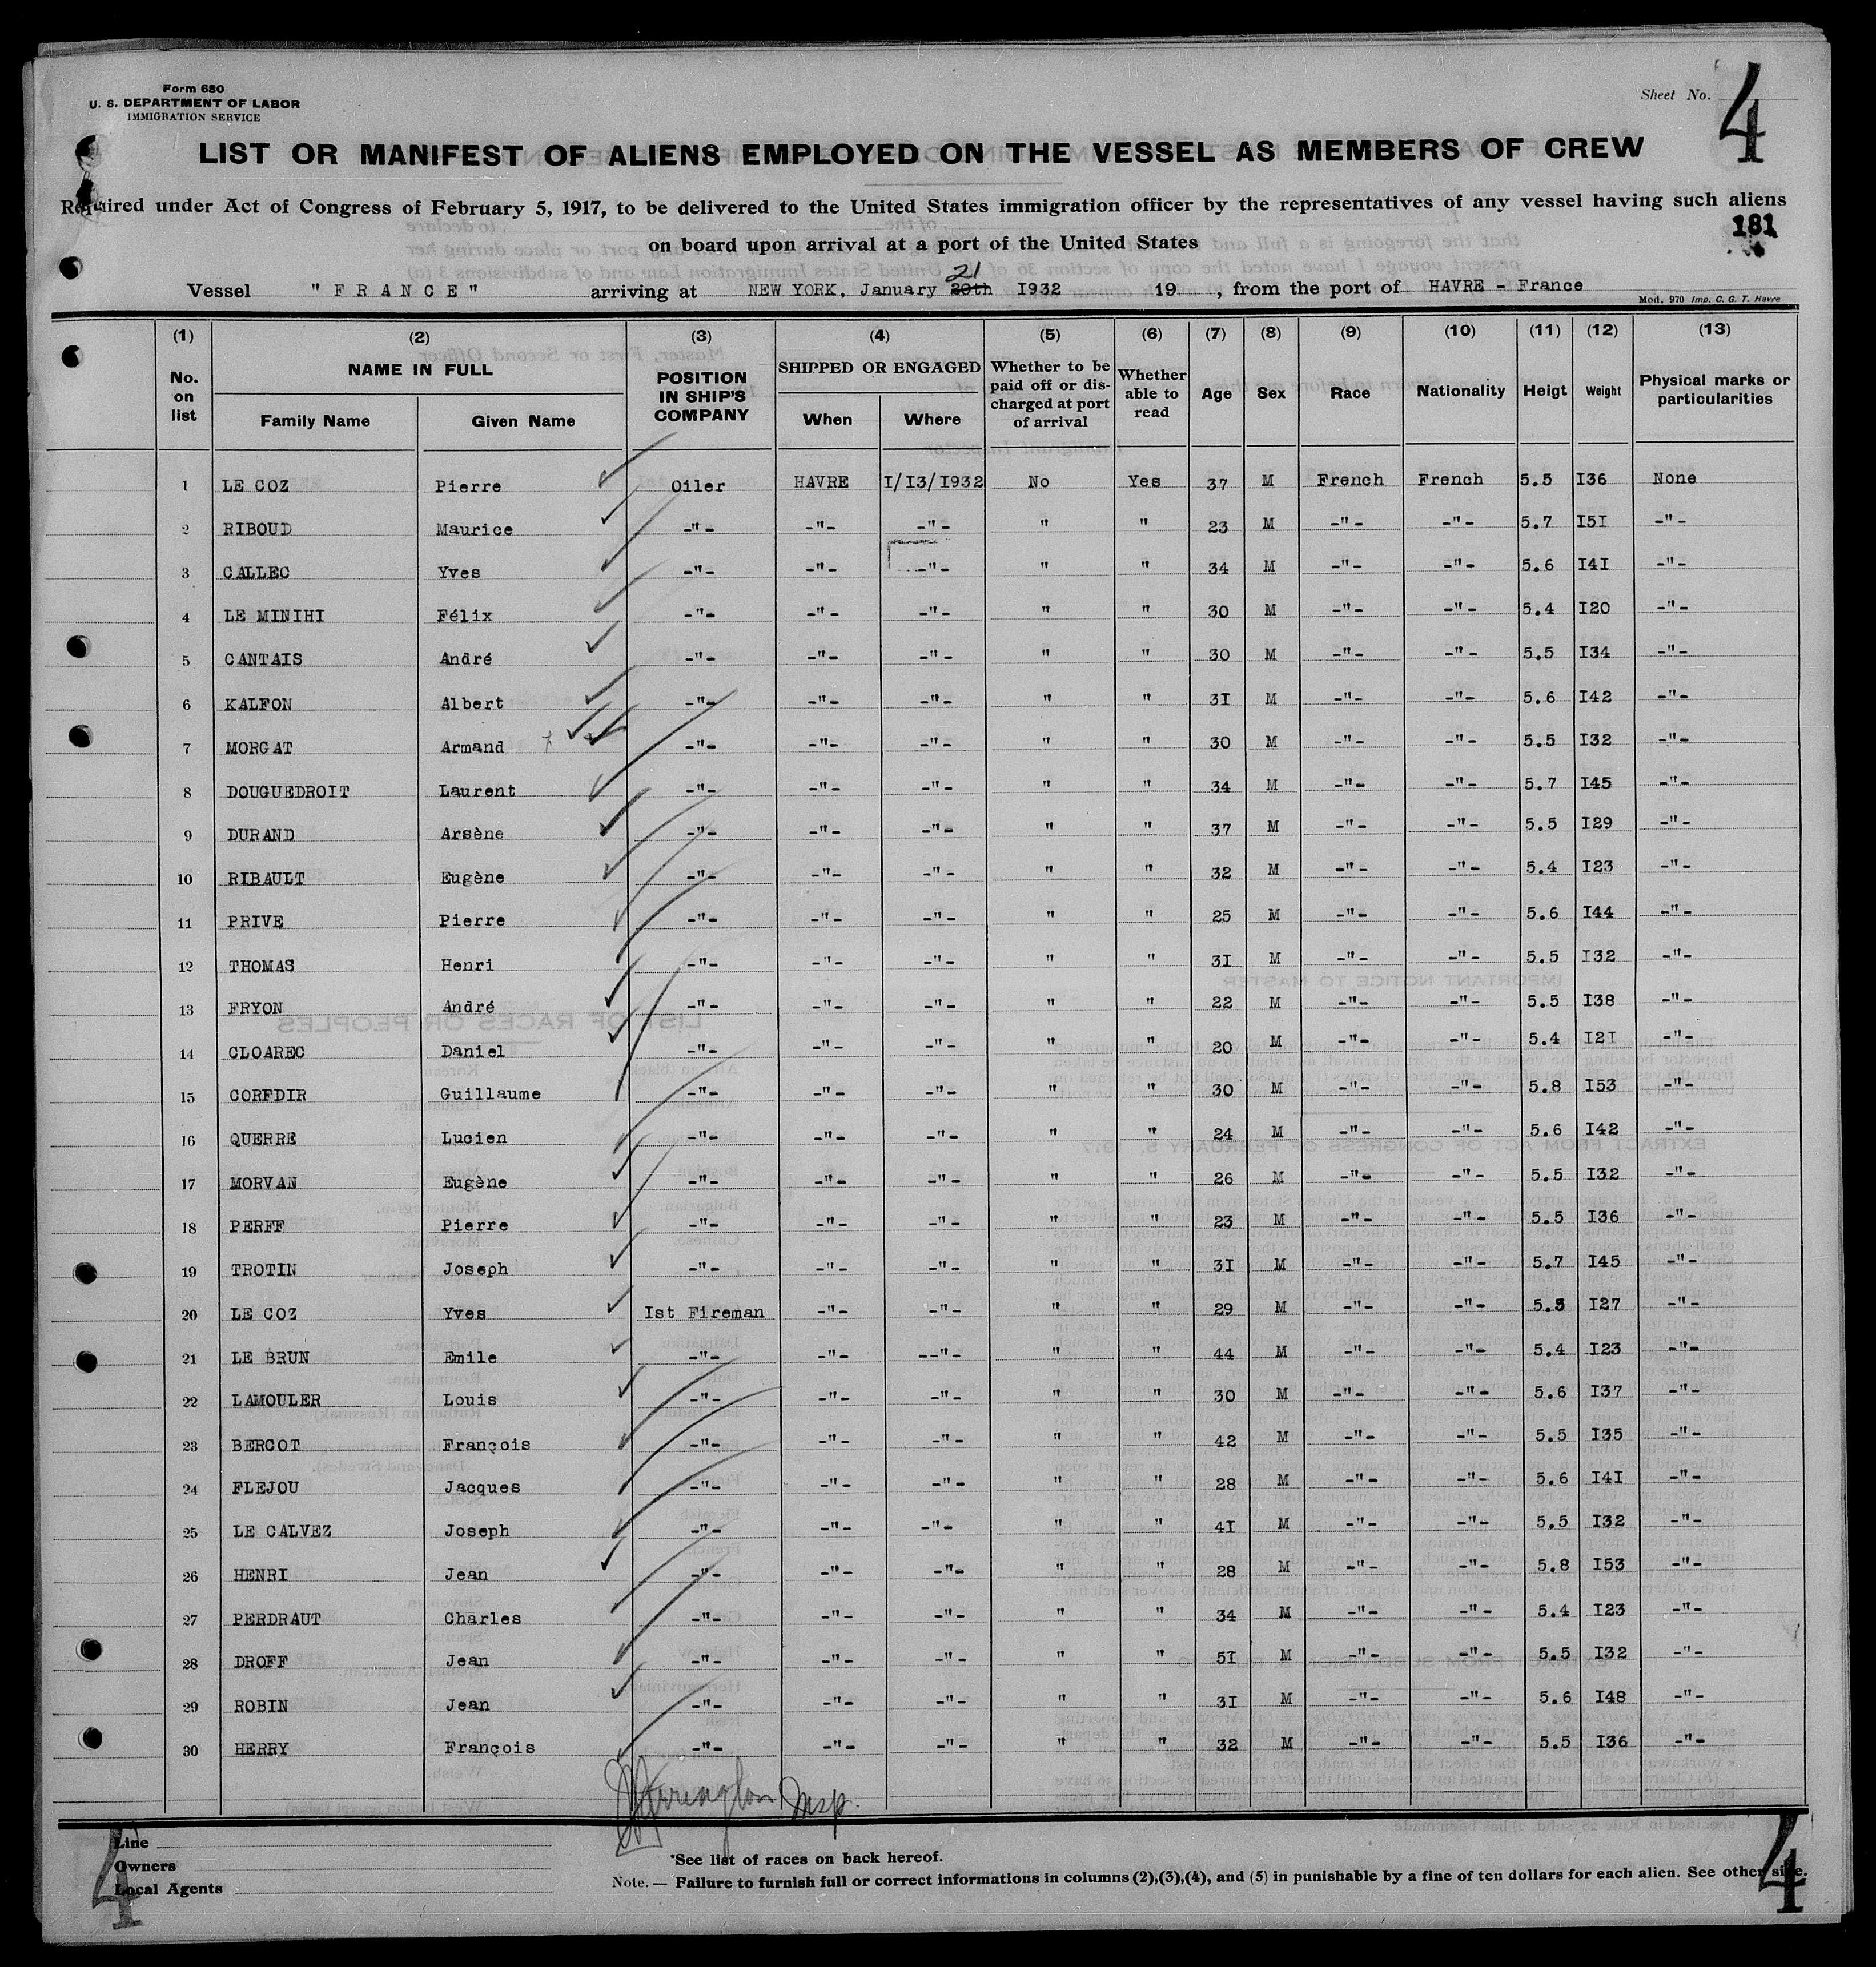 Form 680
U. S. DEPARTMENT OF LABOR
IMMIGRATION SERVICE
Sheet No. 4
LIST OR MANIFEST OF ALIENS EMPLOYED ON THE VESSEL AS MEMBERS OF CREW
Required under Act of Congress of February 5, 1917, to be delivered to the United States immigration officer by the representatives of any vessel having such aliens
on board upon arrival at a port of the United States
181
21
Vessel "FRANCE" arriving at NEW YORK, January 20th I932 19 , from the port of HAVRE - France
Mod. 970 Imp. C. G. T. Havre
(1) (2) (3) (4) (5) (6) (7) (8) (9) (10) (11) (12) (13)
No. on list NAME IN FULL Family Name Given Name POSITION IN SHIP'S COMPANY SHIPPED OR ENGAGED When Where Whether to be paid off or discharged at port of arrival Whether able to read Age Sex Race Nationality Heigt Weight Physical marks or particularities
1 LE COZ Pierre Oiler HAVRE I/I3/I932 No Yes 37 M French French 5.5 I36 None
2 RIBOUD Maurice -"- -"- -"- " " 23 M -"- -"- 5.7 I5I -"-
3 CALLEC Yves -"- -"- -"- " " 34 M -"- -"- 5.6 I4I -"-
4 LE MINIHI Félix -"- -"- -"- " " 30 M -"- -"- 5.4 I20 -"-
5 CANTAIS André -"- -"- -"- " " 30 M -"- -"- 5.5 I34 -"-
6 KALFON Albert -"- -"- -"- " " 3I M -"- -"- 5.6 I42 -"-
7 MORGAT Armand -"- -"- -"- " " 30 M -"- -"- 5.5 I32 -"-
8 DOUGUEDROIT Laurent -"- -"- -"- " " 34 M -"- -"- 5.7 I45 -"-
9 DURAND Arsène -"- -"- -"- " " 37 M -"- -"- 5.5 I29 -"-
10 RIBAULT Eugène -"- -"- -"- " " 32 M -"- -"- 5.4 I23 -"-
11 PRIVE Pierre -"- -"- -"- " " 25 M -"- -"- 5.6 I44 -"-
12 THOMAS Henri -"- -"- -"- " " 3I M -"- -"- 5.5 I32 -"-
13 FRYON André -"- -"- -"- " " 22 M -"- -"- 5.5 I38 -"-
14 CLOAREC Daniel -"- -"- -"- " " 20 M -"- -"- 5.4 I2I -"-
15 CORFDIR Guillaume -"- -"- -"- " " 30 M -"- -"- 5.8 I53 -"-
16 QUERRE Lucien -"- -"- -"- " " 24 M -"- -"- 5.6 I42 -"-
17 MORVAN Eugène -"- -"- -"- " " 26 M -"- -"- 5.5 I32 -"-
18 PERFF Pierre -"- -"- -"- " " 23 M -"- -"- 5.5 I36 -"-
19 TROTIN Joseph -"- -"- -"- " " 3I M -"- -"- 5.7 I45 -"-
20 LE COZ Yves Ist Fireman -"- -"- " " 29 M -"- -"- 5.5 I27 -"-
21 LE BRUN Emile -"- -"- --"- " " 44 M -"- -"- 5.4 I23 -"-
22 LAMOULER Louis -"- -"- -"- " " 30 M -"- -"- 5.6 I37 -"-
23 BERCOT François -"- -"- -"- " " 42 M -"- -"- 5.5 I35 -"-
24 FLEJOU Jacques -"- -"- -"- " " 28 M -"- -"- 5.6 I4I -"-
25 LE CALVEZ Joseph -"- -"- -"- " " 4I M -"- -"- 5.5 I32 -"-
26 HENRI Jean -"- -"- -"- " " 28 M -"- -"- 5.8 I53 -"-
27 PERDRAUT Charles -"- -"- -"- " " 34 M -"- -"- 5.4 I23 -"-
28 DROFF Jean -"- -"- -"- " " 5I M -"- -"- 5.5 I32 -"-
29 ROBIN Jean -"- -"- -"- " " 3I M -"- -"- 5.6 I48 -"-
30 HERRY François -"- -"- -"- " " 32 M -"- -"- 5.5 I36 -"-
Insp.
Line
Owners
Local Agents
*See list of races on back hereof.
Note. — Failure to furnish full or correct informations in columns (2),(3),(4), and (5) in punishable by a fine of ten dollars for each alien. See other side.
4 4